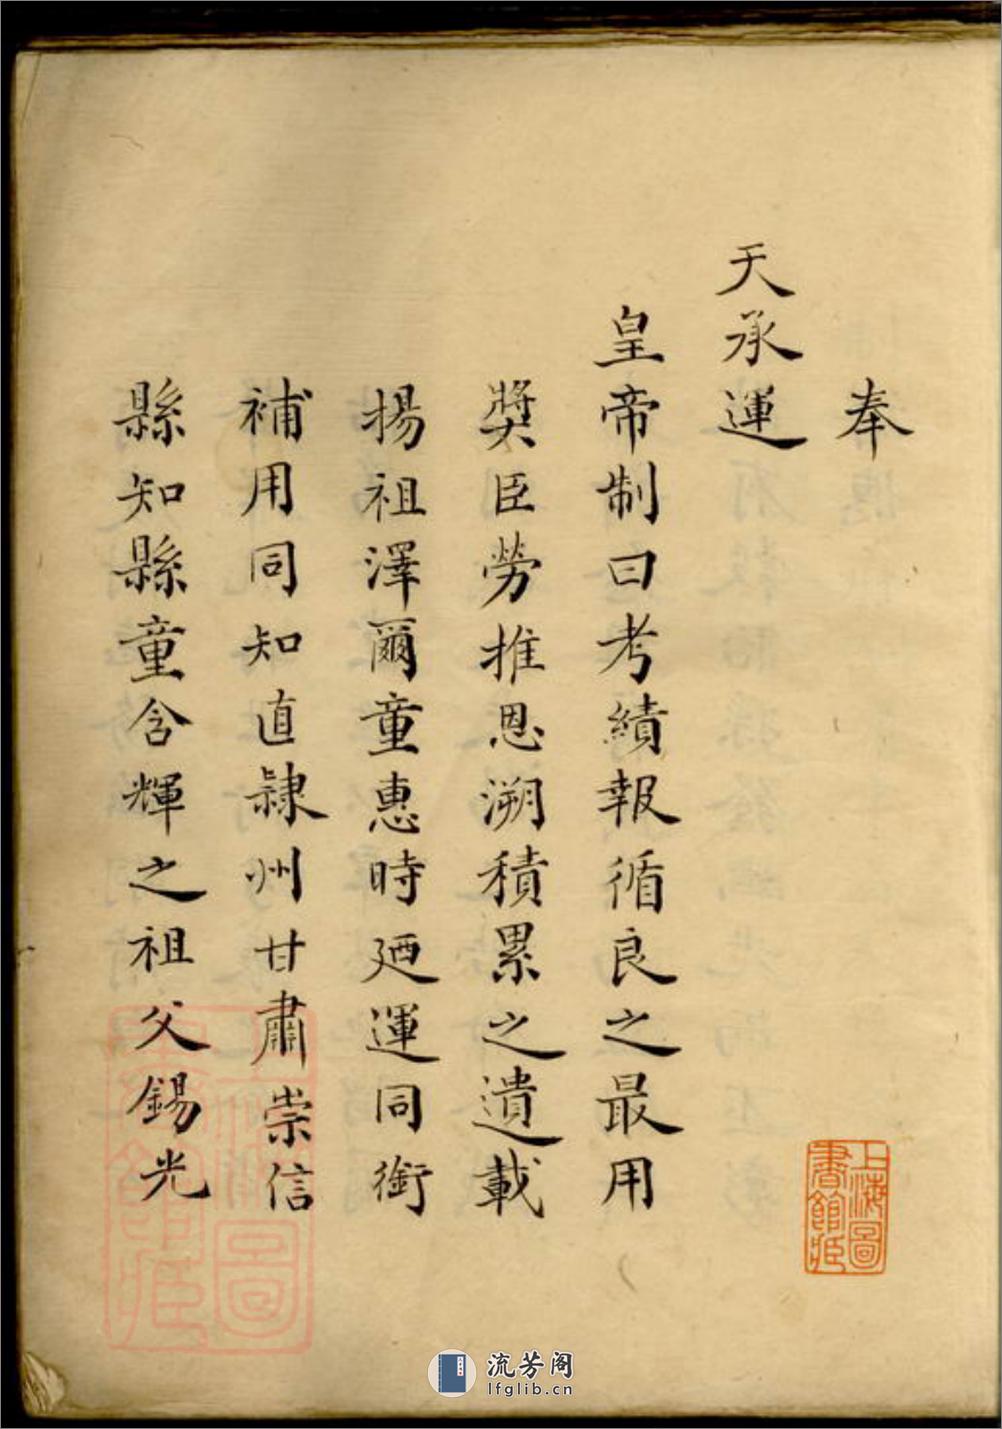 奉
天承運
皇帝制曰考績報循良之最用
獎臣勞推恩溯積累之遺載
揚祖澤爾童惠時廼運同銜
補用同知直隸州甘肅崇信
縣知縣童含輝之祖父錫光
上海圖
書館藏
流芳阁
lfglib.cn